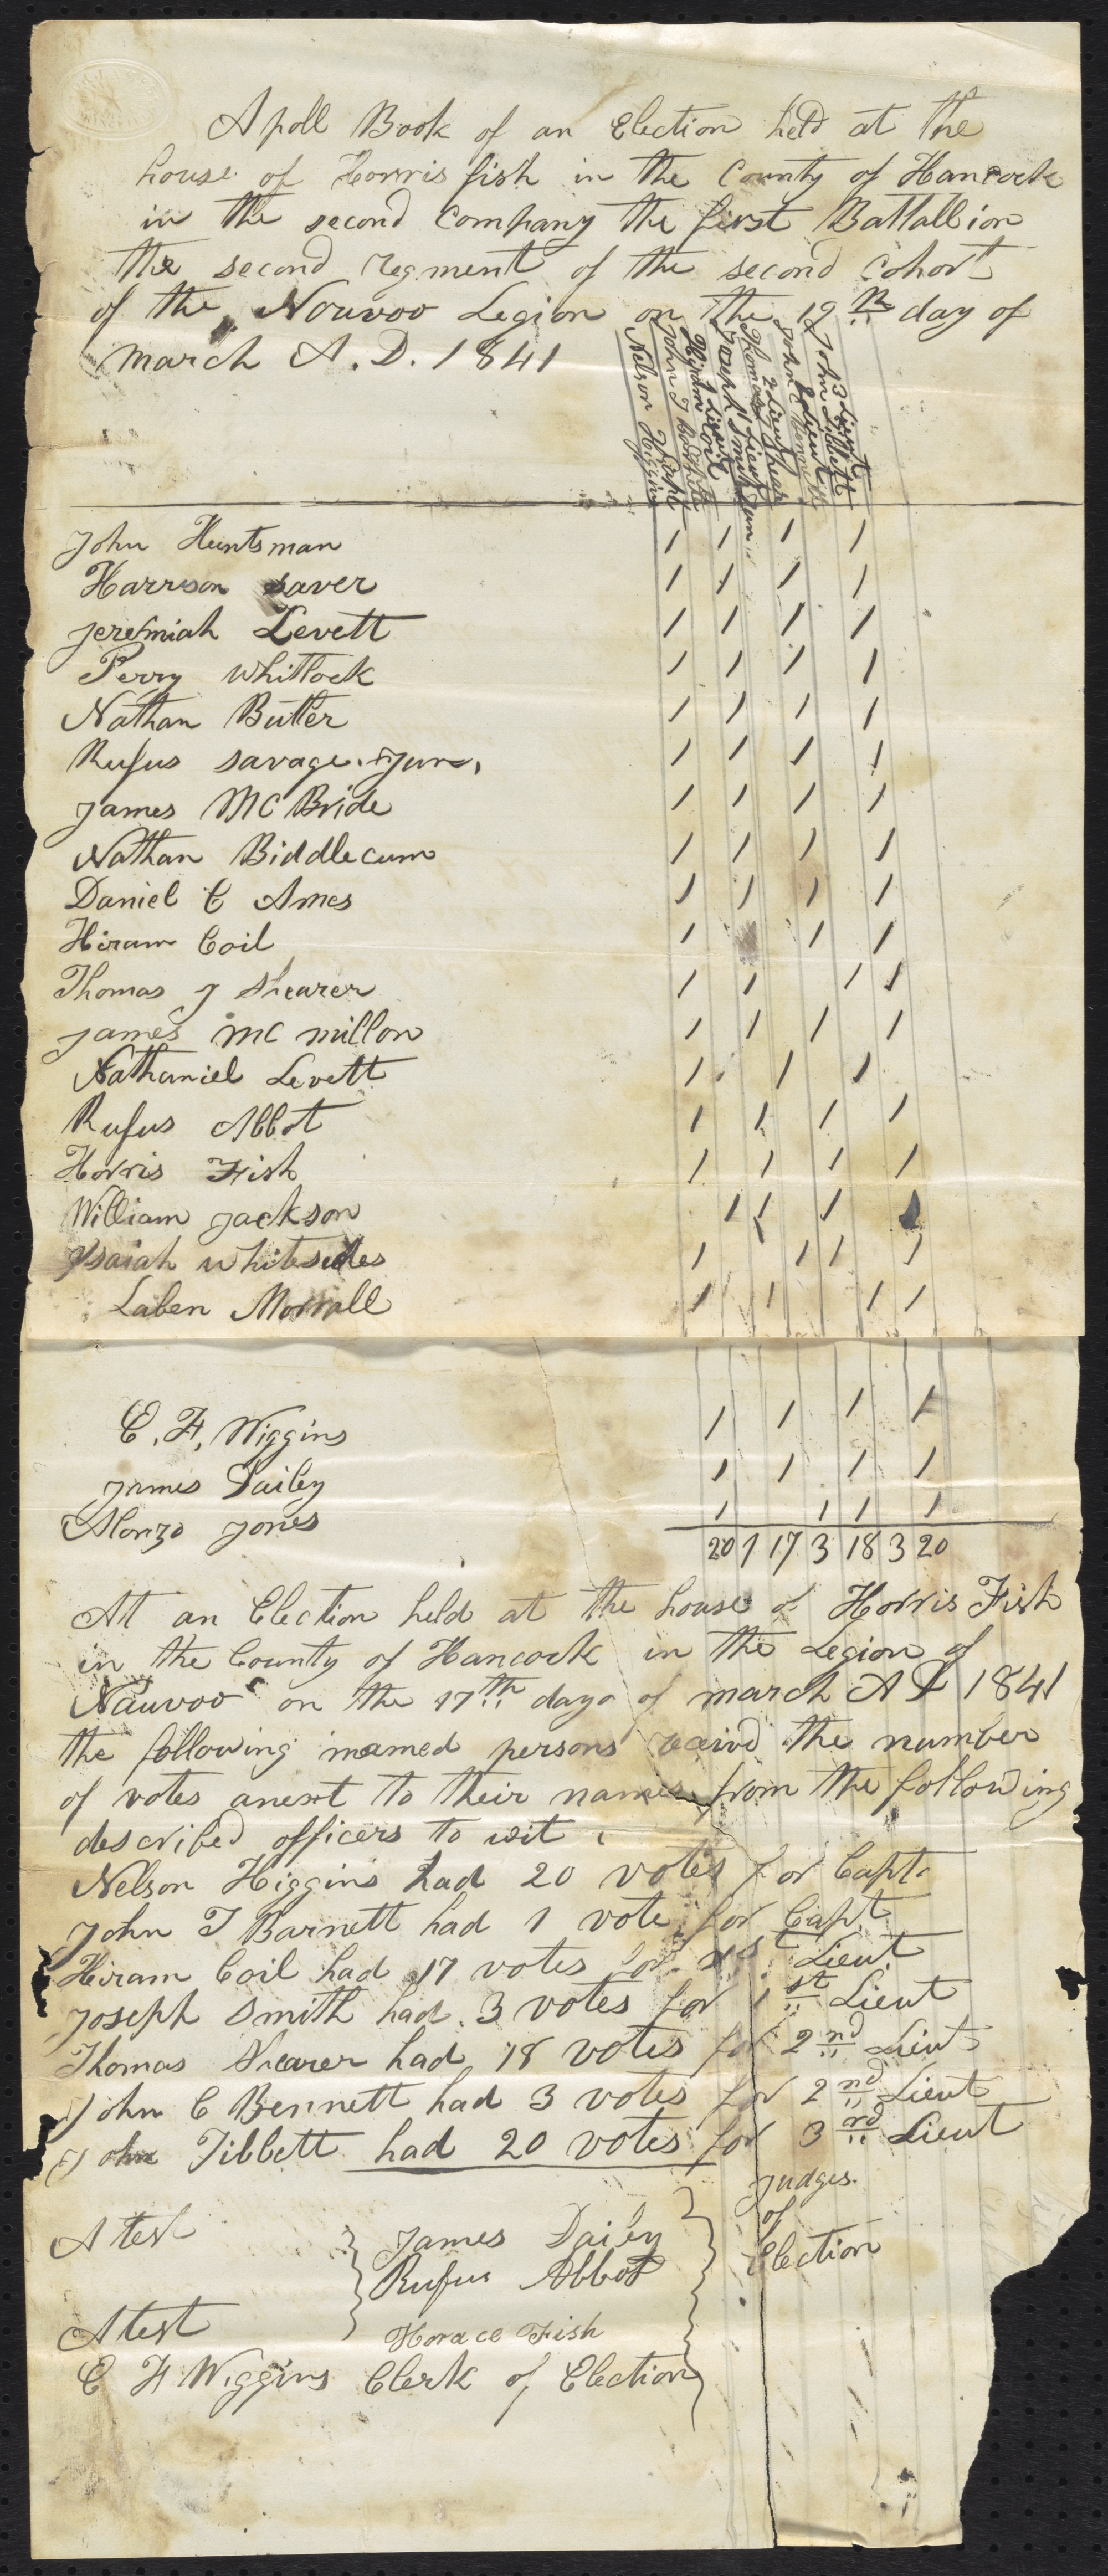 A poll Book of an Election held at the
house of Horris fish in the County of Hancock
in the second Company the first Battallion
the second regment of the second Cohort
of the Nouvoo Legion on the 19 th day of
march A. D. 1841
Nelson Higgins
John T
Hiram Coil
Joseph Smith Jun
Thomas Shearer 2 Lieut
John C Bennett 2 Lieut
John Tibbett 3 Lieut
John Huntsman / / / /
Harrison saver / / / /
Jeremiah Levett / / / /
Perry Whitlock / / / /
Nathan Butler / / / /
Rufus Savage. Jun. / / / /
James MC Bride / / / /
Nathan Biddlecum / / / /
Daniel C Ames / / / /
Hiram Coil / / /
Thomas J Shearer / / / /
James MC millon / / / /
Nathaniel Levett / / /
Rufus Abbot / / / /
Horris Fish / / / /
William Jackson / / / /
Isaiah whitesides / / / /
Laben Morrall / / / /
E. F. Wiggins / / / /
James Dailey / / / /
Alonzo Jones / / / /
20 1 17 3 18 3 20
At an Election held at the house of Horris Fish
in the County of Hancock in the Legion of
Nauvoo on the 17th day of march A D 1841
the following mamed persons the number
of votes anext to their names from the following
described officers to wit
Nelson Higgins had 20 votes for Capt.
John T Barnett had 1 vote for Capt
Hiram Coil had 17 votes for 1st Lieut
Joseph Smith had 3 votes for 1st Lieut
Thomas Shearer had 18 votes for 2nd Lieut
John C Bennett had 3 votes for 2nd Lieut
John Tibbett had 20 votes for 3rd Lieut
Atest James Dailey Judges
Rufus Abbot of Election
Atest Horace Fish
E F Wiggins Clerk of Election